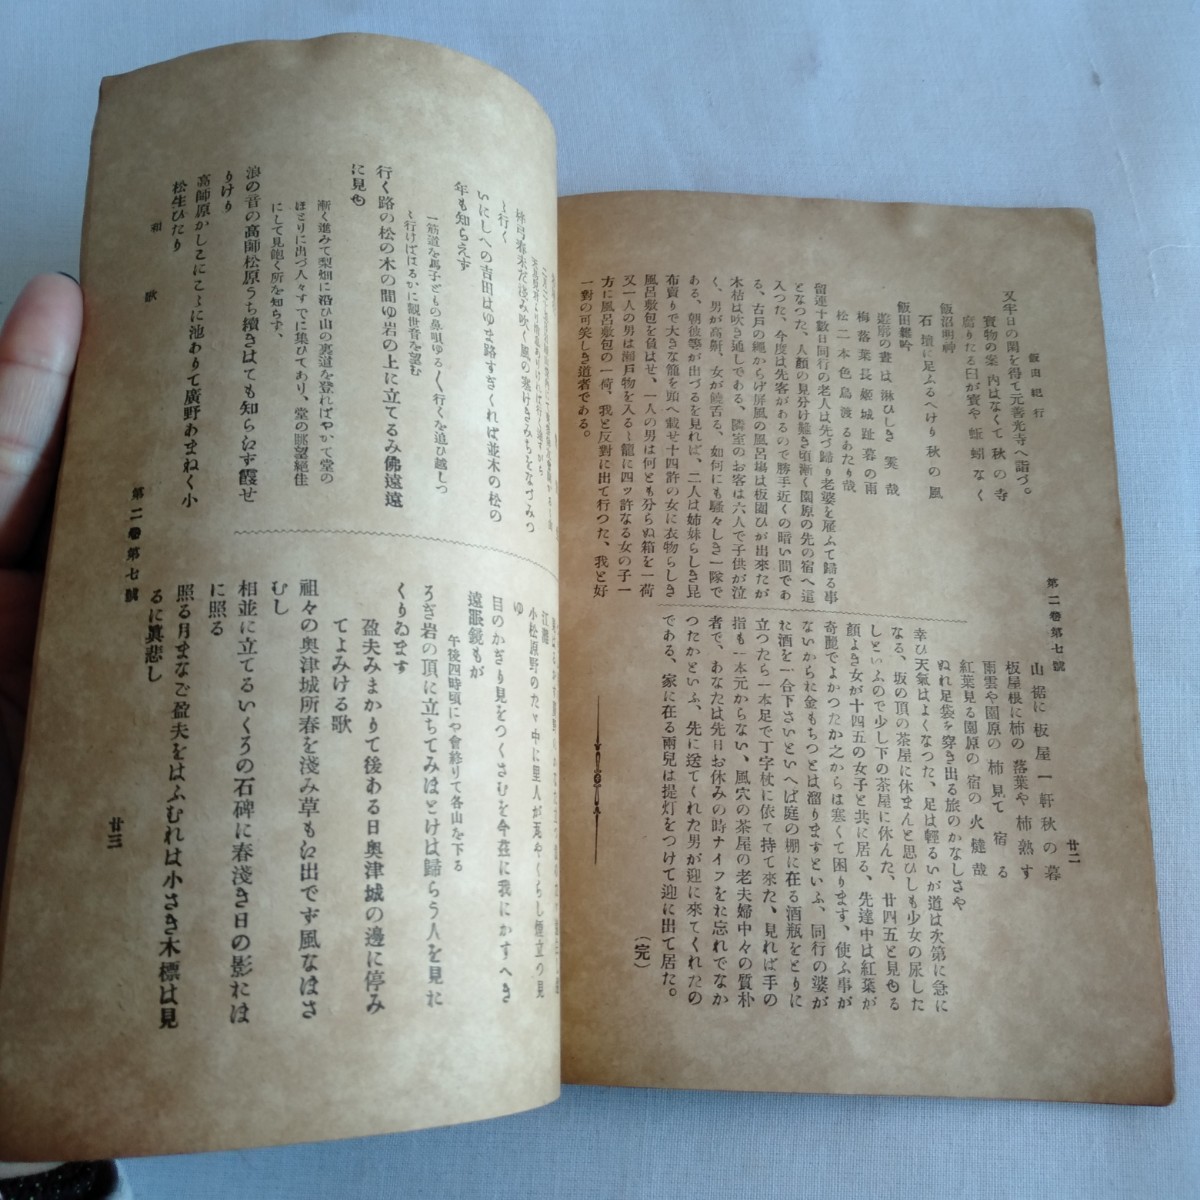 飯田紀行
第二卷第七號
廿二
又年日の閑を得て元善光寺へ詣づ。
寶物の案内はなくて秋の寺
腐りたる臼が寶や蚯蚓なく
飯沼明神
石壇に足ふるへけり秋の風
飯田雜吟
遊廓の晝は淋ひしき寞哉
梅落葉長姬城趾暮の雨
松二本色鳥渡るあたり哉
留連十數日同行の老人は先づ歸り老婆を雇ふて歸る事
となつた、人顏の見分け難き頃漸く園原の先の宿へ這
入つた、今度は先客があるので勝手近くの暗い間であ
る、古戶の繩からげ屏風の風呂場は板圍ひが出來たが
木枯は吹き通しである、隣室のお客は六人で子供が泣
く、男が高鼾、女が饒舌る、如何にも騷々しき一隊で
ある、朝彼等が出づるを見れば、二人は姉妹らしき昆
布賣りで大きな籠を頭へ載せ十四許の女に衣物らしき
風呂敷包を負はせ、一人の男は何とも分らぬ箱を一荷
又一人の男は瀨戶物を入るゝ籠に四ツ許なる女の子一
方に風呂敷包の一荷、我と反對に出て行つた、我と好
一對の可笑しき道者である。
山裾に板屋一軒秋の暮
板屋根に柿の落葉や柿熟す
雨雲や園原の柿見て宿る
紅葉見る園原の宿の火燵哉
ぬれ足袋を穿き出る旅のかなしさや
幸ひ天氣はよくなつた、足は輕るいが道は次第に急に
なる、坂の頂の茶屋に休まんと思ひしも少女の尿した
しといふので少し下の茶屋に休んだ、廿四五と見ゆる
顏よき女が十四五の女子と共に居る、先達中は紅葉が
奇麗でよかつたが之からは寒くて困ります、使ふ事が
ないからお金もちつとは溜りますといふ、同行の婆が
た酒を一合下さいといへば庭の棚に在る酒瓶をとりに
立つたら一本足で丁字杖に依て持て來た、見れば手の
指も一本元からない、風穴の茶屋の老夫婦中々の質朴
者で、あなたは先日お休みの時ナイフをお忘れでなか
つたかといふ、先に送てくれた男が迎に來てくれたの
である、家に在る兩兒は提灯をつけて迎に出て居た。
（完）
ゝ行く
いにしへの吉田はゆま路すぎくれば並木の松の
年も知らえず
一筋道を馬子どもの鼻唄ゆるく行くを追ひ越しつ
ゝ行けばはるかに觀世音を望む
行く路の松の木の間ゆ岩の上に立てるみ佛遠遠
に見ゆ
漸く進みて梨畑に沿ひ山の裏道を登ればやがて堂の
ほとりに出づ人々すでに集ひてあり、堂の眺望絕佳
にして見飽く所を知らず、
浪の音の高師松原うち續きはても知らえず霞せ
りけり
高師原かしこにこゝに池ありて廣野あまねく小
松生ひたり
小松原野のたゞ中に里人が炭やくらし煙立つ見
ゆ
目のかぎり見をつくさむを今玆に我にかすべき
遠眼鏡もが
午後四時頃にや會終りて各山を下る
ろぎ岩の頂に立ちてみほとけは歸らう人を見た
くりゐます
盈夫みまかりて後ある日奧津城の邊に停み
てよみける歌
祖々の奧津城所春を淺み草もえ出でず風なほさ
むし
相並に立てるいくろの石碑に春淺き日の影たは
に照る
照る月まなご盈夫をはふむれは小さき木標は見
るに眞悲し
和歌
第二卷第七號
廿三